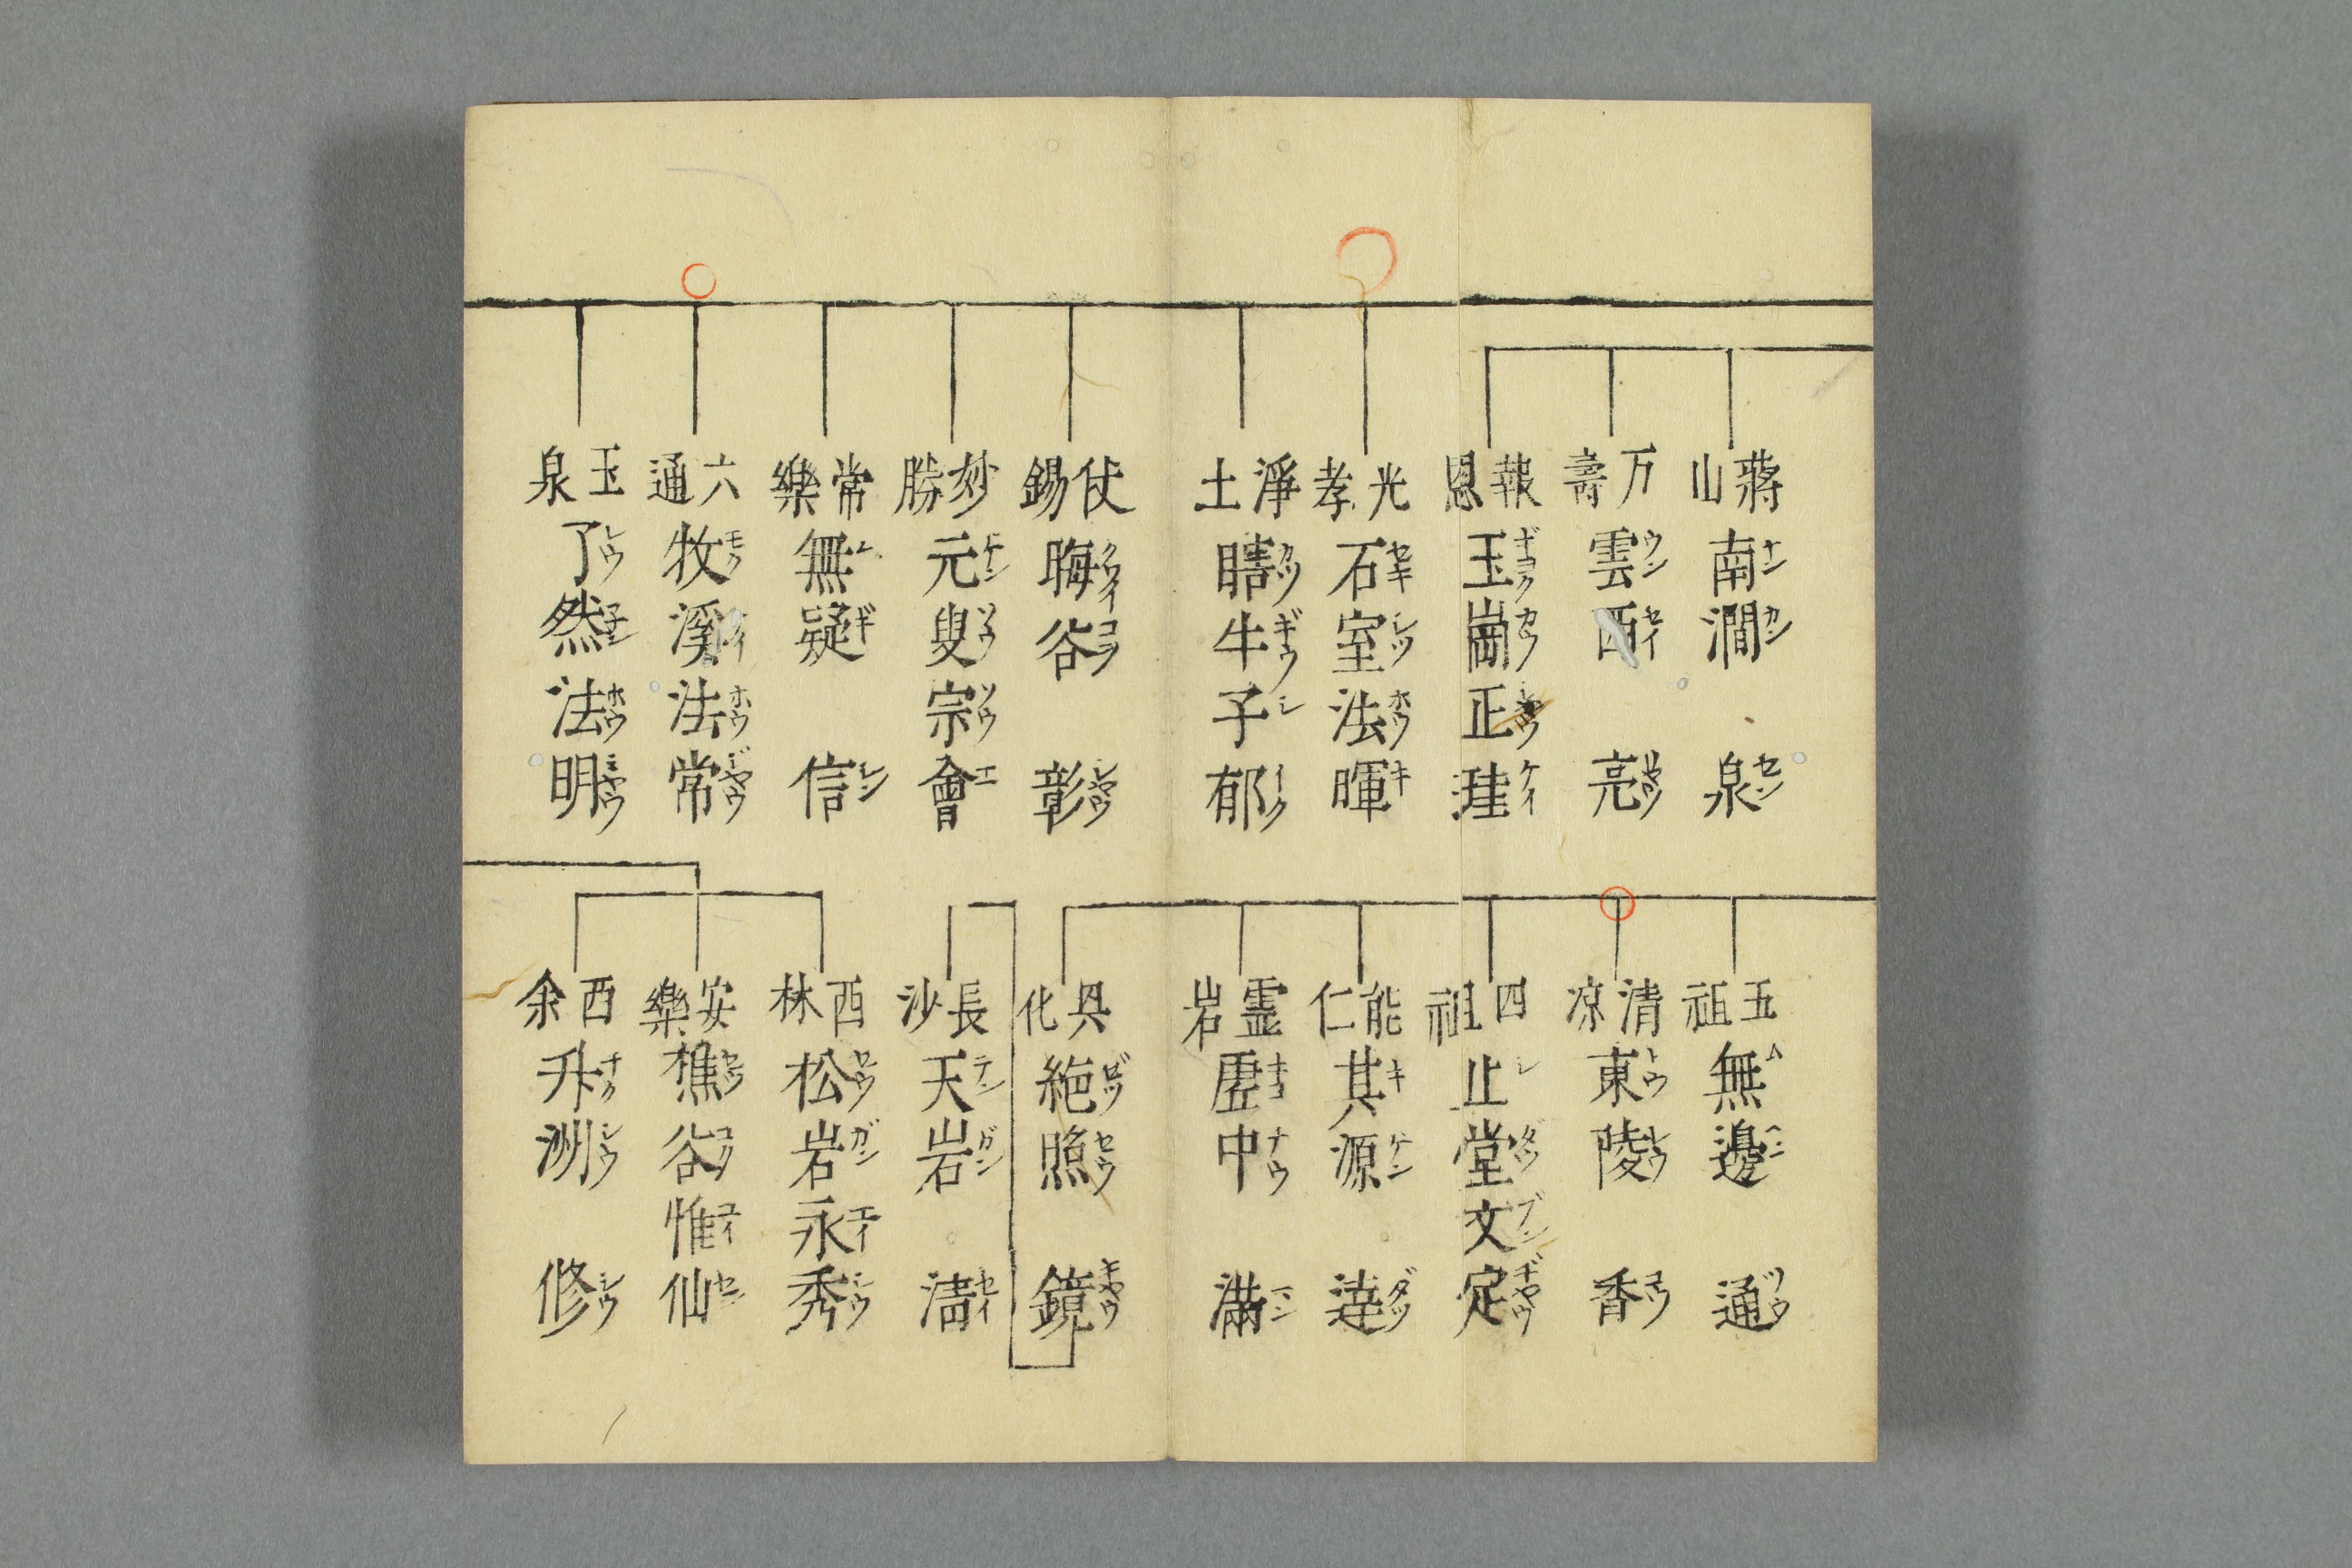 蔣山 南澗 泉
万壽 雲西 亮
報恩 玉崗正珪
光孝 石室法暉
淨土 瞎牛子郁
仗錫 晦谷 彰
妙勝 元叟宗會
常樂 無疑 信
六通 牧溪法常
玉泉 了然法明
五祖 無邊 通
清凉 東陵 香
四祖 止堂文定
能仁 其源 達
霊岩 虚中 滿
興化 絶照 鏡
長沙 天岩 清
西林 松岩永秀
安樂 樵谷惟仙
西余 洲 修